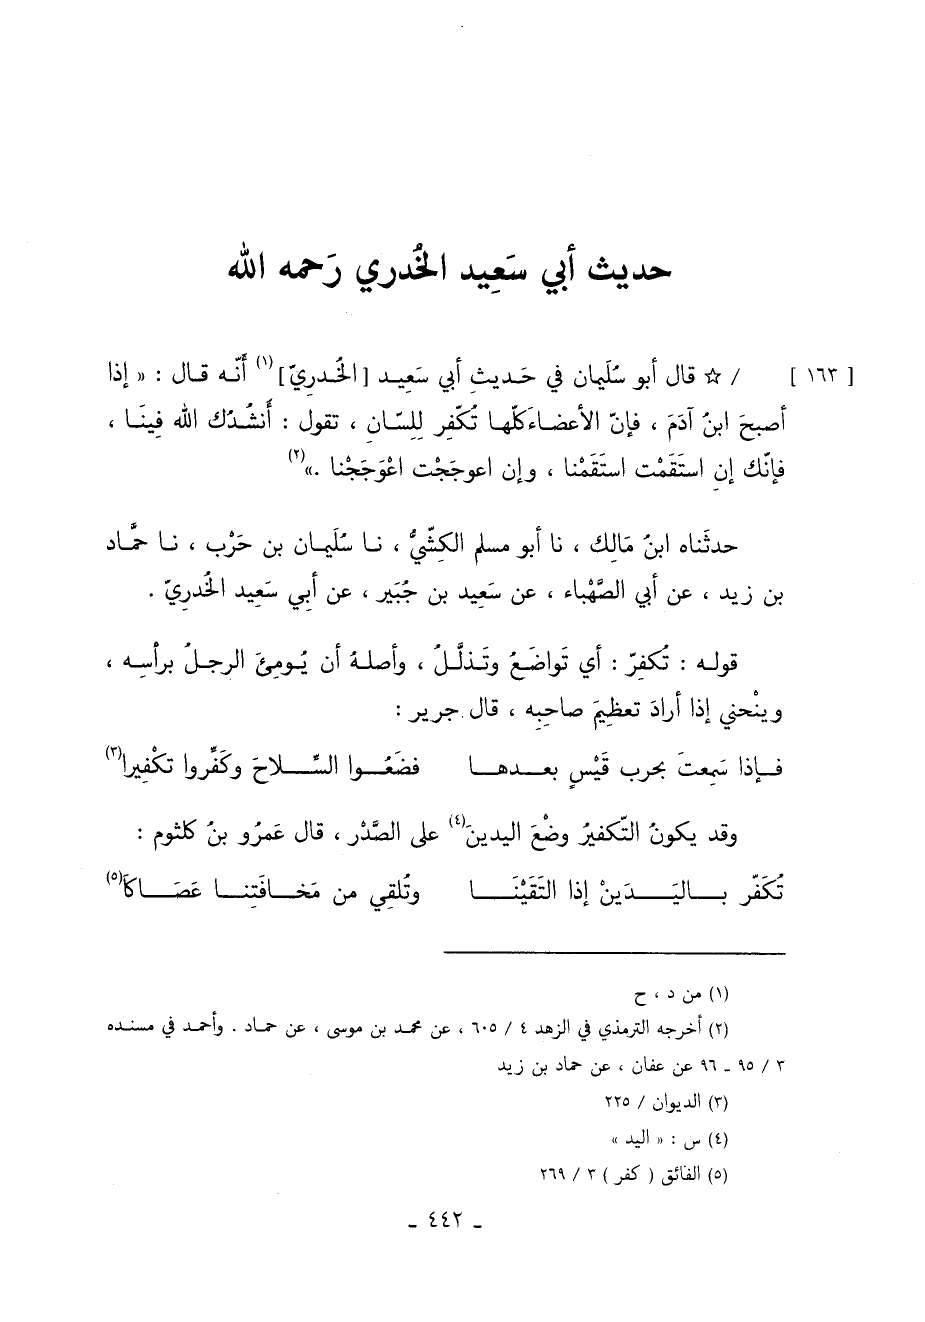 حديث أبي سَعِيد الخُدري رَحمه الله
[ ١٦٣ ] / ☆ قال أبو سُلَيمان في حَديثِ أبي سَعِيد [الخُدريّ](١) أنّه قال : « إذا
أصبحَ ابنُ آدَمَ ، فإنّ الأعضاءَ كلّها تُكَفّر لِلِسّانِ ، تقول : أَنشُدُك الله فِينَا ،
فإنّك إنِ استَقَمْت استَقَمْنا ، وإن اعوجَجْت اعْوَجَجْنا .»(٢)
حدثَناه ابنُ مَالِك ، نا أبو مسلم الكِشّيُّ ، نا سُلَيمان بن حَرْب ، نا حمَّاد
بن زيد ، عن أبي الصَّهْباء ، عن سَعِيد بن جُبَير ، عن أبِي سَعِيد الخُدريّ .
قوله : تُكفِرّ : أي تَواضَعُ وتَذلَّلُ ، وأصلهُ أن يُومِئَ الرجلُ برأسِه ،
وينْحني إذا أرادَ تعظِيمَ صاحبِه ، قال جرير :
فإذا سَمِعتَ بحرب قَيْسٍ بعدها فضَعُوا السِّلاحَ وكَفِّروا تكْفِيرا(٣)
وقد يكونُ التّكفيرُ وضْعَ اليدينَ(٤) على الصَّدْر ، قال عَمرُو بنُ كلثوم :
تُكَفّر باليَدَينْ إذا التَقَيْنَا وتُلقِي من مَخافَتِنا عَصَاكَا(٥)
(١) من د ، ح
(٢) أخرجه الترمذي في الزهد ٤ / ٦٠٥ ، عن محمد بن موسى ، عن حماد . وأحمد في مسنده
٣ / ٩٥ ـ ٩٦ عن عفان ، عن حماد بن زيد
(٣) الديوان / ٢٢٥
(٤) س : « اليد »
(٥) الفائق ( كفر ) ٣ / ٢٦٩
ـ ٤٤٢ ـ